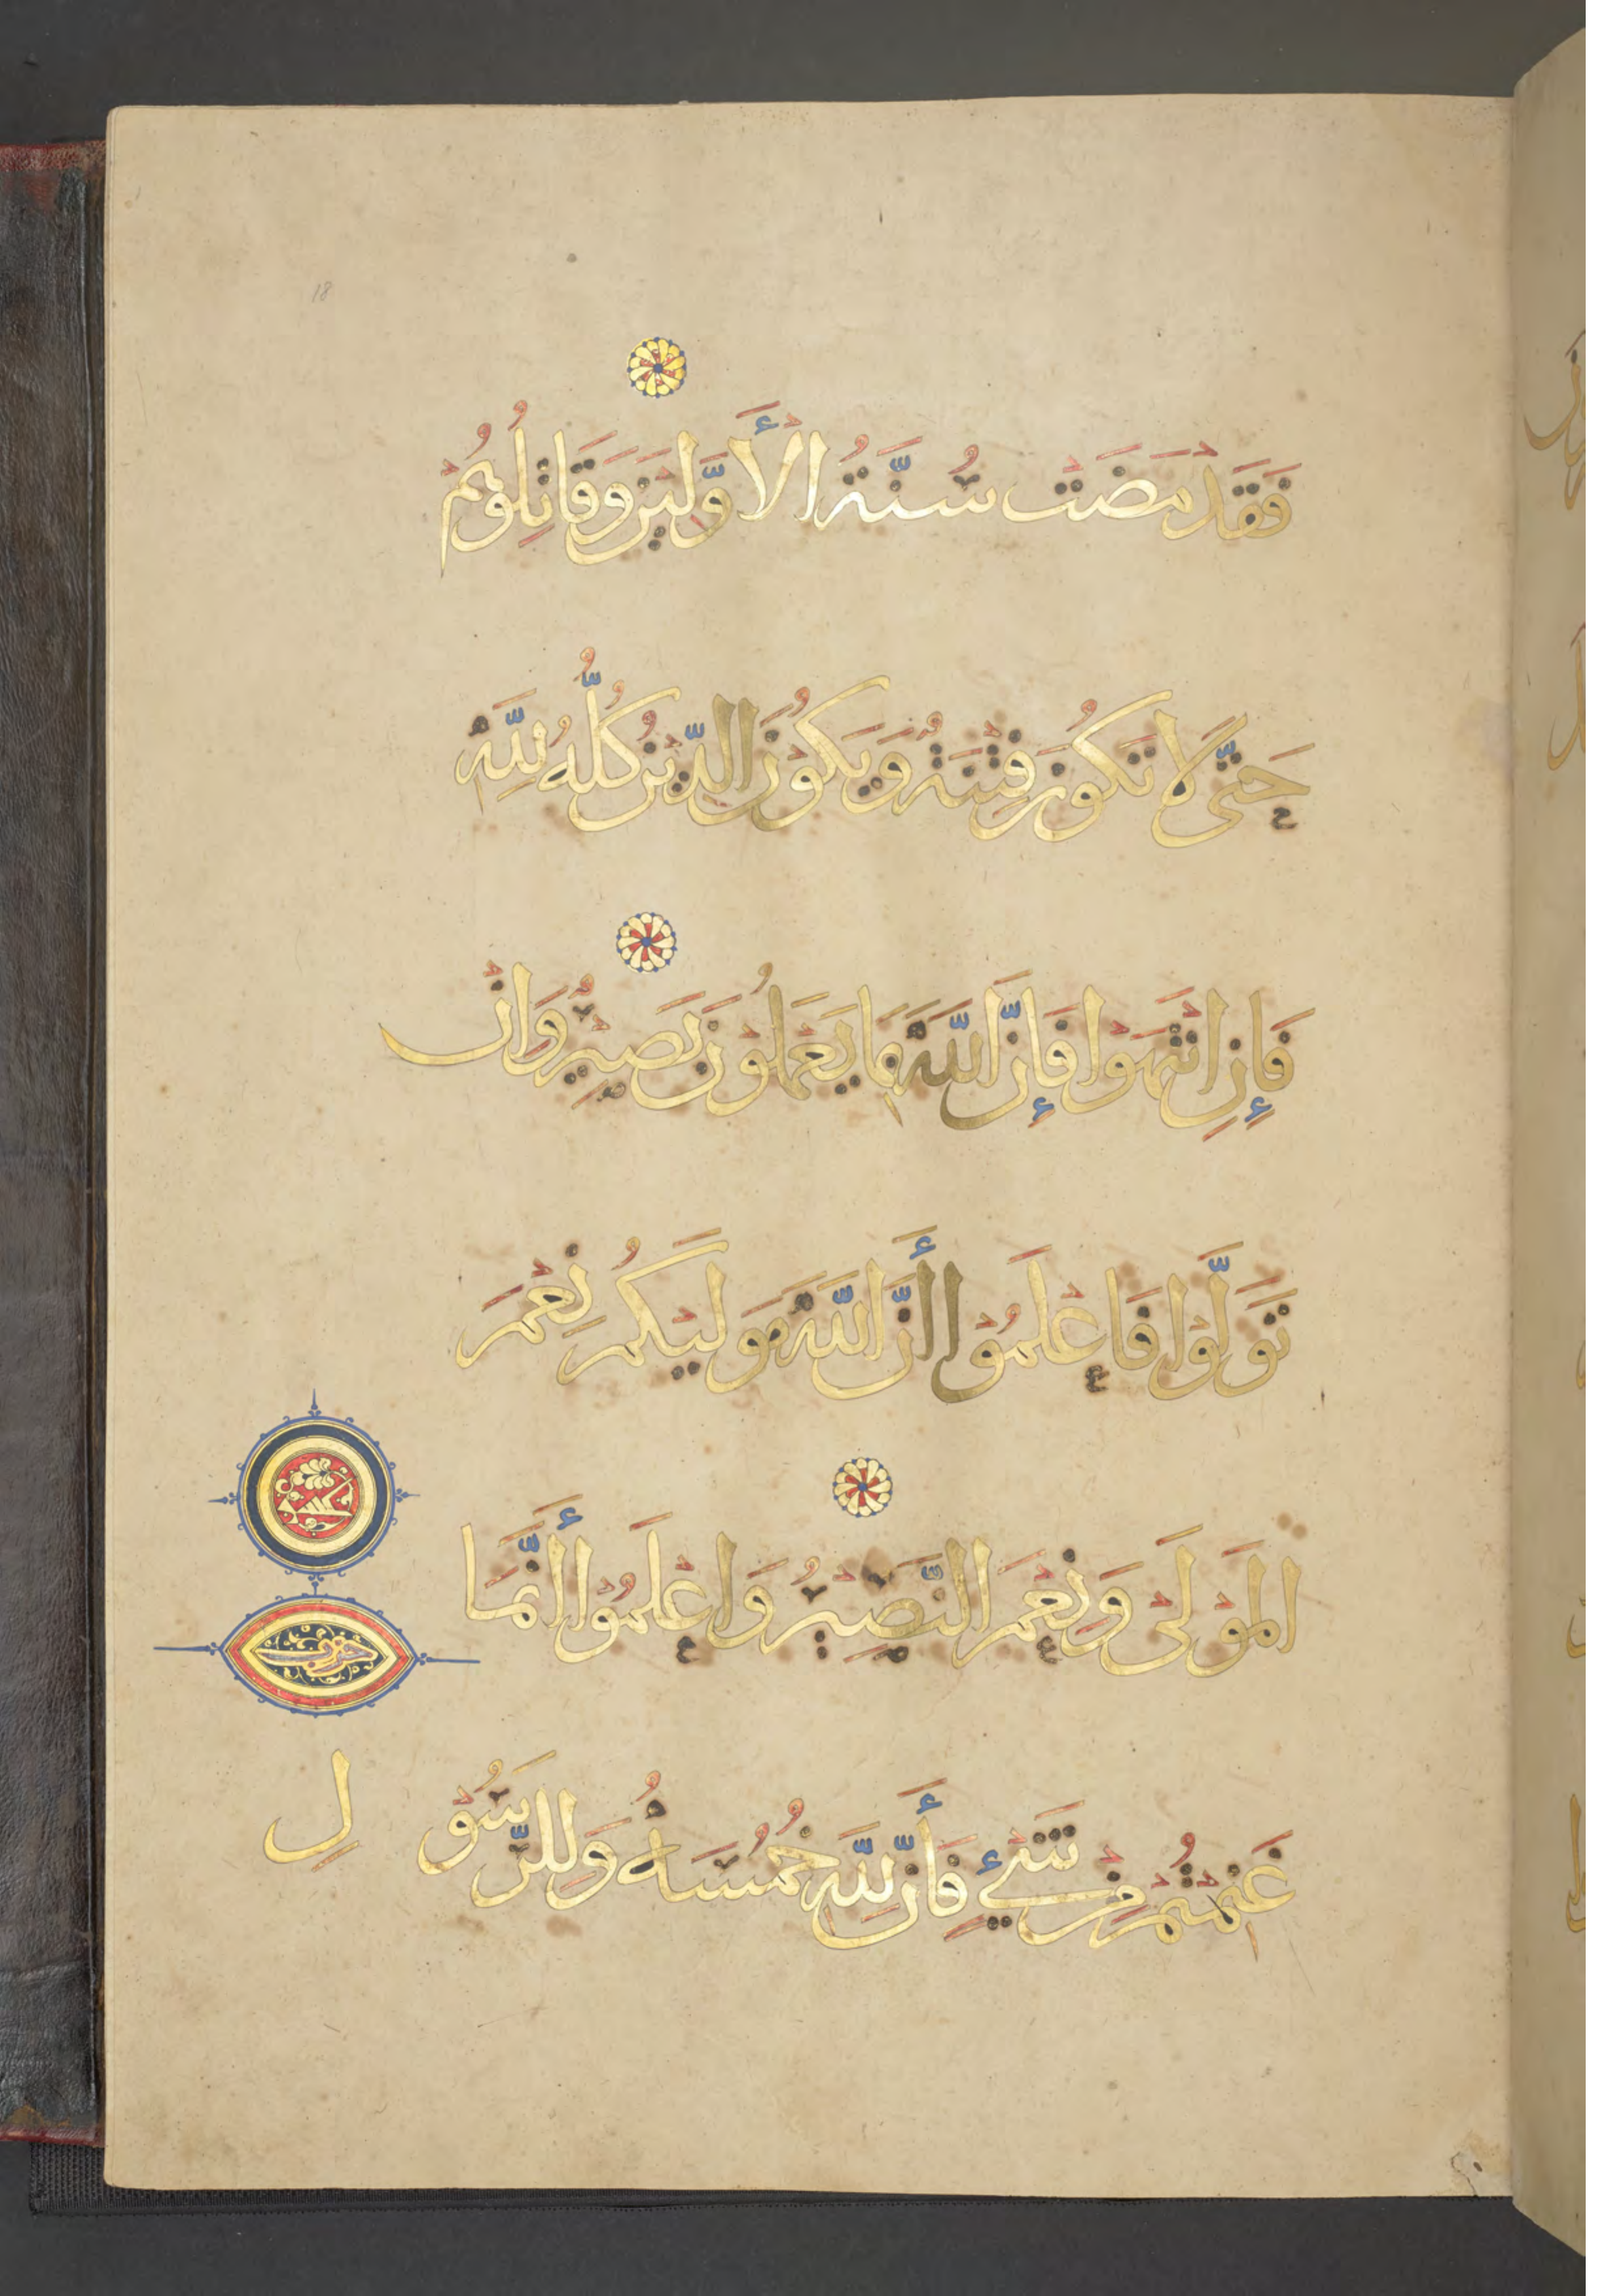 18
فَقَدْ مَضَتْ سُنَّةُ الْأَوَّلِيْنَ وَقَاتِلُوْهُمْ
حَتَّى لَا تَكُوْنَ فِتْنَةٌ وَيَكُوْنَ الدِّيْنُ كُلُّهُ لِلَّهِ
فَإِنِ انْتَهَوْا فَإِنَّ اللَّهَ بِمَا يَعْمَلُوْنَ بَصِيْرٌ وَاِنْ
تَوَلَّوْا فَاعْلَمُوْا أَنَّ اللَّهَ مَوْلَيكُمْ نِعْمَ
الْمَوْلَى وَنِعْمَ النَّصِيْرُ وَاعْلَمُوْا أَنَّمَا
غَنِمْتُمْ مِنْ شَيْءٍ فَأَنَّ لِلَّهِ خُمُسَهُ وَلِلرَّسُوْلِ
خمسة
حزب